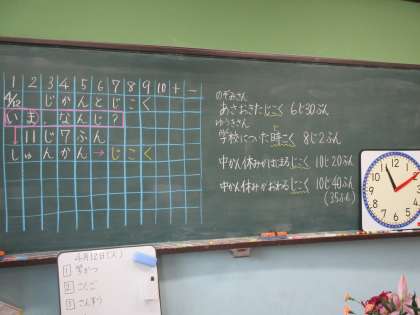 1 2 3 4 5 6 7 8 9 10 + -
4/12 じかんとじこく
いま、なんじ?
↓11じ7ふん
しゅんかん→じこく
のぞみさん
あさおきたじこく 6じ30ぷん
ゆうきさん
学校についた時こく 8じ2ふん
中かん休みがはじまるじこく 10じ20ぷん
中かん休みがおわるじこく 10じ40ぷん
(35ふん)
4月12日(火)
1 学かつ
2 こくご
3 さんすう